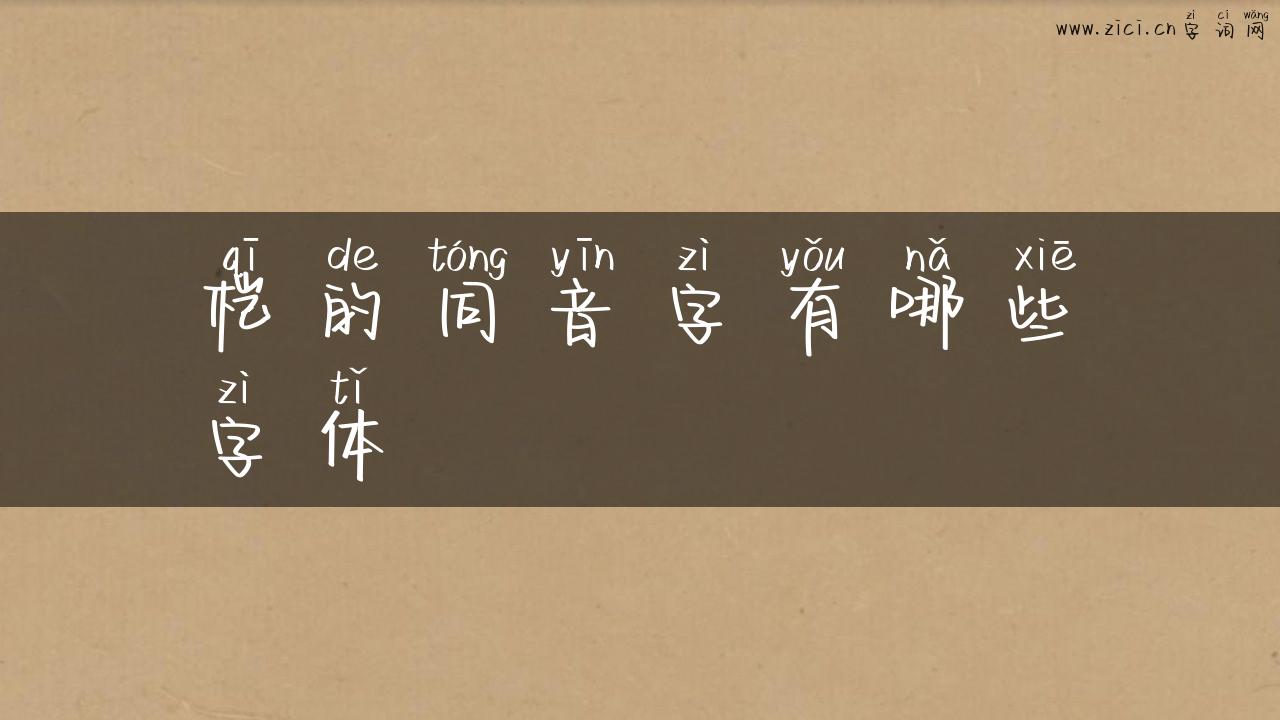 zì cí wǎng
www.zici.cn 字 词 网
qī de tóng yīn zì yǒu nǎ xiē
桤 的 同 音 字 有 哪 些
zì tǐ
字 体